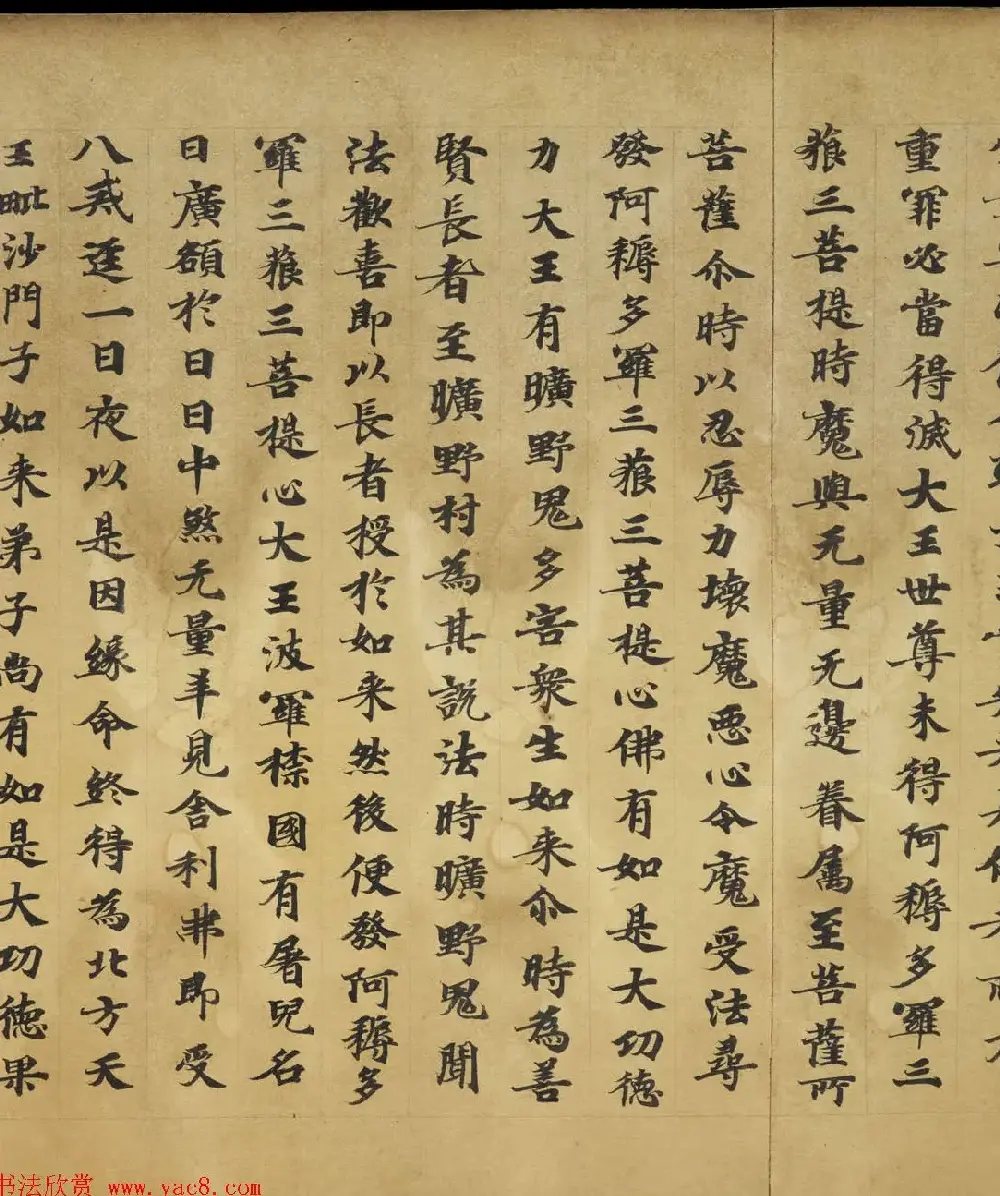 重罪必當得滅大王世尊未得阿耨多羅三
藐三菩提時魔與无量无邊眷属至菩薩所
菩薩尒時以忍辱力壞魔惡心令魔受法尋
發阿耨多羅三藐三菩提心佛有如是大功德
力大王有曠野鬼多害衆生如来尒時為善
賢長者至曠野村為其說法時曠野鬼聞
法歡喜即以長者授於如来然後便發阿耨多
羅三藐三菩提心大王波羅㮈國有屠兒名
曰廣額於日日中煞无量羊見舍利弗即受
八戒逕一日夜以是因緣命終得為北方天
王毗沙門子如来弟子尚有如是大功德果
书法欣赏 www.yac8.com